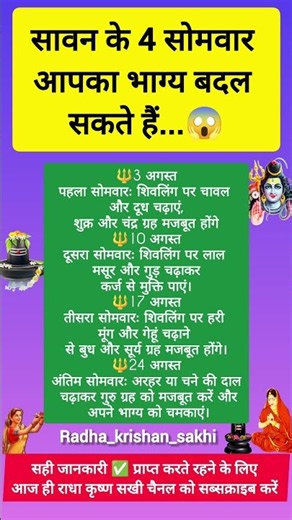 सावन के 4 सोमवार
आपका भाग्य बदल
सकते हैं...😱
🔱3 अगस्त
पहला सोमवारः शिवलिंग पर चावल
और दूध चढ़ाएं,
शुक्र और चंद्र ग्रह मजबूत होंगे
🔱10 अगस्त
दूसरा सोमवारः शिवलिंग पर लाल
मसूर और गुड़ चढ़ाकर
कर्ज से मुक्ति पाएं।
🔱17 अगस्त
तीसरा सोमवारः शिवलिंग पर हरी
मूंग और गेहूं चढ़ाने
से बुध और सूर्य ग्रह मजबूत होंगे।
🔱24 अगस्त
अंतिम सोमवारः अरहर या चने की दाल
चढ़ाकर गुरु ग्रह को मजबूत करें और
अपने भाग्य को चमकाएं।
Radha_krishan_sakhi
सही जानकारी ✅ प्राप्त करते रहने के लिए
आज ही राधा कृष्ण सखी चैनल को सब्सक्राइब करें